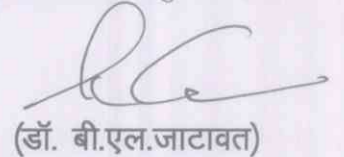 (डॉ. बी.एल.जाटावत)